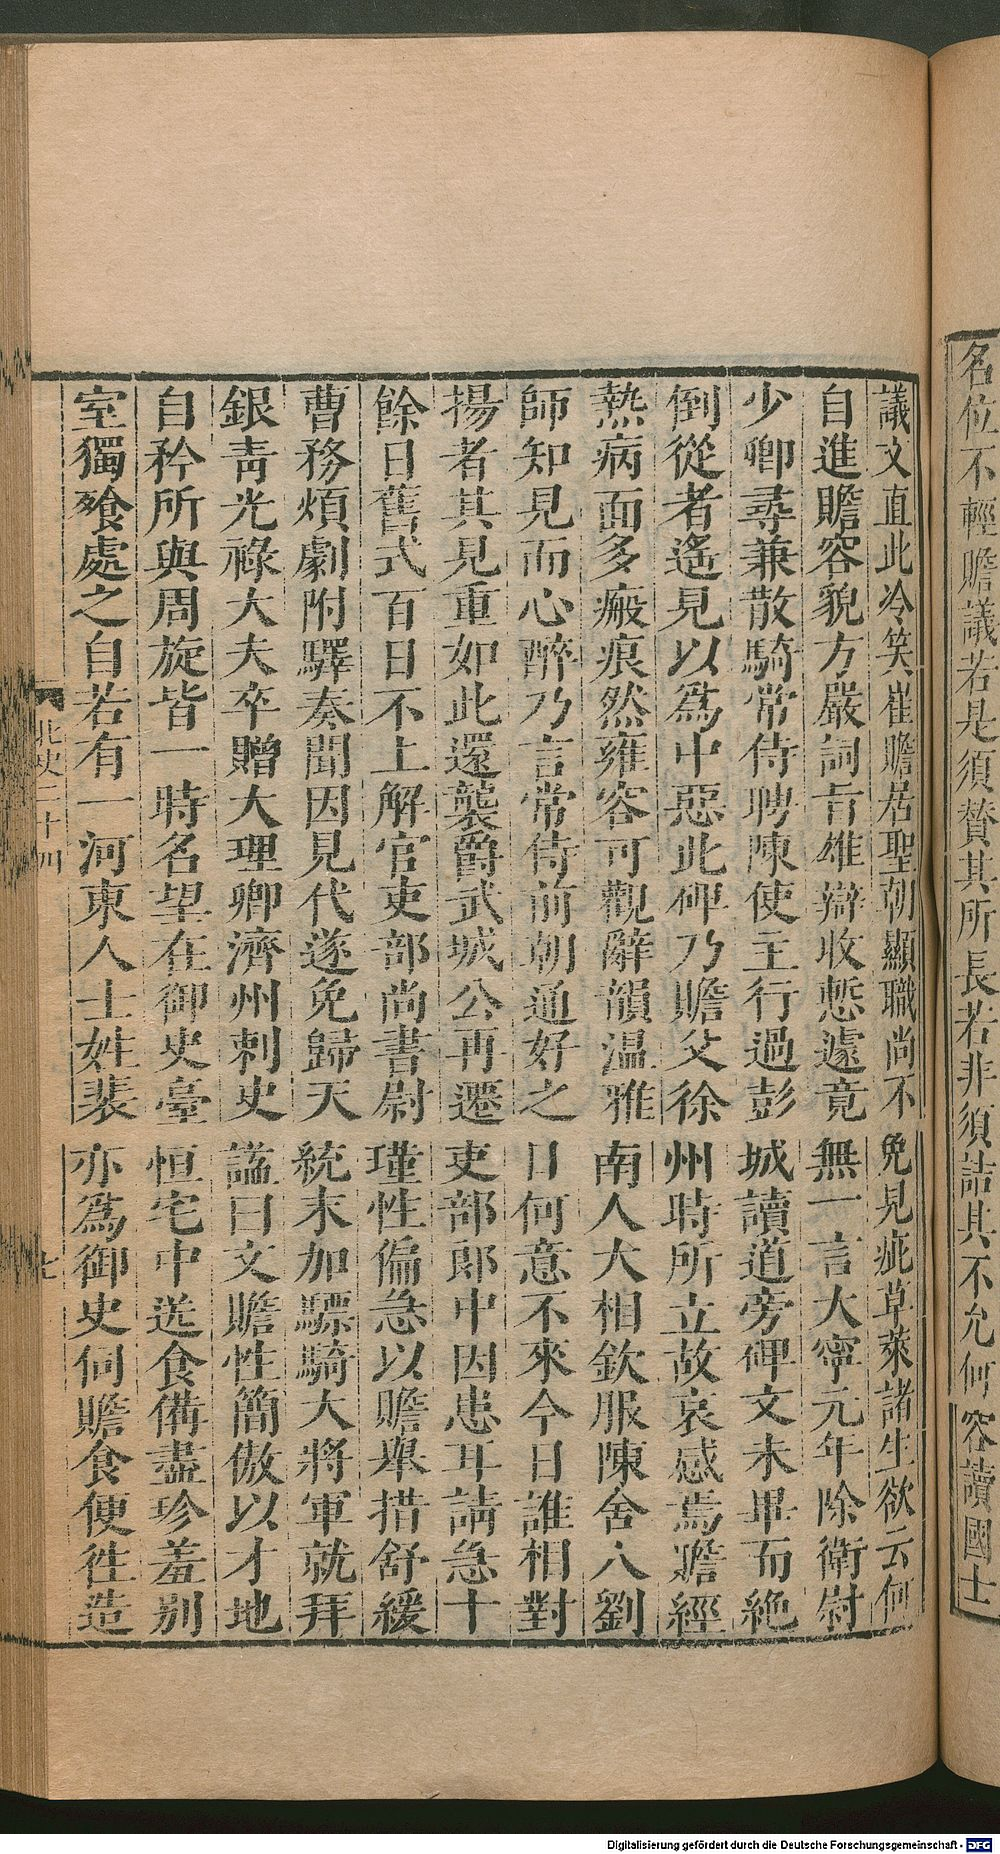 名位不輕瞻議若是須贊其所長若非須詰其不允何容讀國士
議文直此冷笑崔瞻居聖朝顯職尚不免見疵草萊諸生欲云何
自進瞻容貌方嚴詞旨雄辯收慙遽竟無一言大寧元年除衛尉
少卿尋兼散騎常侍聘陳使主行過彭城讀道旁碑文未畢而絶
倒從者遙見以爲中惡此碑乃瞻父徐州時所立故哀感焉瞻經
熱病面多瘢痕然雍容可觀辭韻温雅南人大相欽服陳舍人劉
師知見而心醉乃言常侍前朝通好之日何意不來今日誰相對
揚者其見重如此還襲爵武城公再遷吏部郎中因患耳請急十
餘日舊式百日不上解官吏部尚書尉瑾性偏急以瞻舉措舒緩
曹務煩劇附驛奏聞因見代遂免歸天統末加驃騎大將軍就拜
銀靑光祿大夫卒贈大理卿濟州刺史諡曰文瞻性簡傲以才地
自矜所與周旋皆一時名望在御史臺恒宅中送食備盡珍羞別
室獨飡處之自若有一河東人士姓裴亦爲御史伺瞻食便徃造
北史二十四
七
Digitalisierung gefördert durch die Deutsche Forschungsgemeinschaft - DFG